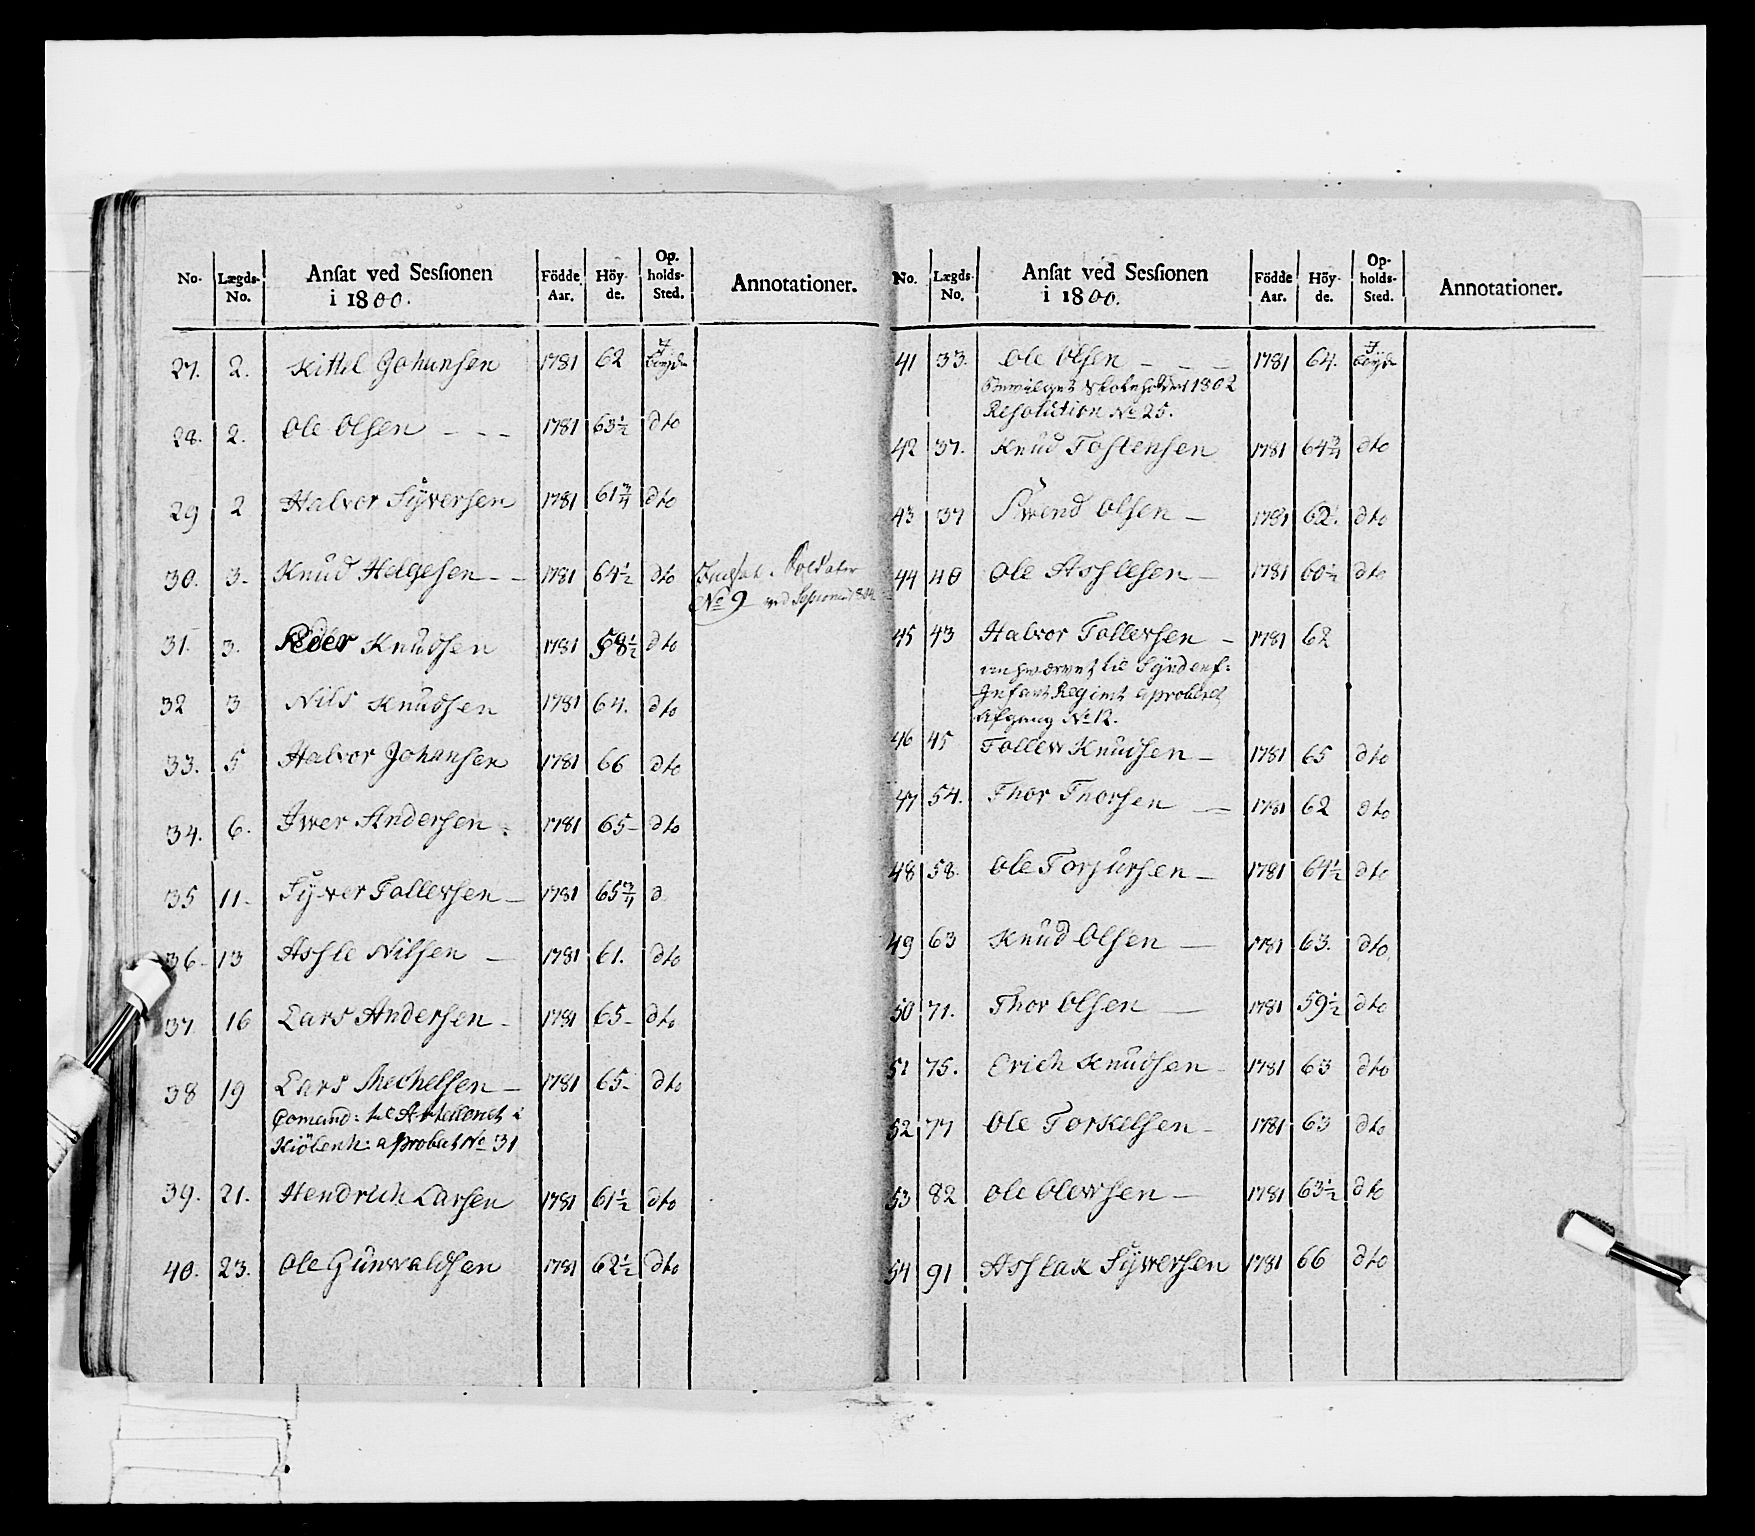 No. Lægds-No. Ansat ved Sessionen i 1800. Födde Aar. Höyde. Opholds-Sted. Annotationer.
27. 2. Kittel Johansen 1781 62 i bøyde
28. 2. Ole Olsen - - - 1781 63½ dto
29 2 Halvor Syversen 1781 61¾ dto
30. 3. Knud Helgesen - - 1781 64½ dto Soldater
No 9 ved Sessionen 1804
31. 3. Peder Knudsen 1781 58½ dto
32 3 Nils Knudsen 1781 64. dto
33. 5 Halvor Johansen 1781 66 dto
34. 6. Iwer Andersen 1781 65- dto
35 11. Sywer Tollevsen - 1781 65¾ d
36- 13 Assle Nilsen - 1781 61. dto
37 16 Lars Andersen - 1781 65- dto
38 19 Lars Mechelsen - 1781 65- dto
Comand: til Artelleriet i
Kiöbenh: aprobat No 31
39. 21. Hendrich Larsen 1781 61½ dto
40. 23. Ole Gunwaldsen 1781 62½ dto
No. Lægds-No. Ansat ved Sessionen i 1800. Födde Aar. Höyde. Opholds-Sted. Annotationer.
41 33. Ole Olsen - - - 1781 64. i bøyde
1802
Resolution No 25.
42 37. Knud Tostensen 1781 64¾ dto
43 37 Swend Olsen - 1781 62. dto
44 40 Ole Asslesen - 1781 60½ dto
45 43 Halvor Tollevsen - 1781 62
til Syndenf:
Infant Regimt aproberet
Afgang No 12.
46 45 Tollev Knudsen - 1781 65 dto
47 54. Thor Thorsen - 1781 62 dto
48 58. Ole Torjursen - 1781 64½ dto
49 63 Knud Olsen - 1781 63. dto
50 71. Thor Olsen - 1781 59½ dto
51 75. Erich Knudsen - 1781 63 dto
52 77 Ole Torkelsen - 1781 63 dto
53 82 Ole Olevsen - 1781 63½ dto
54 91 Asslak Sywersen 1781 66 dto